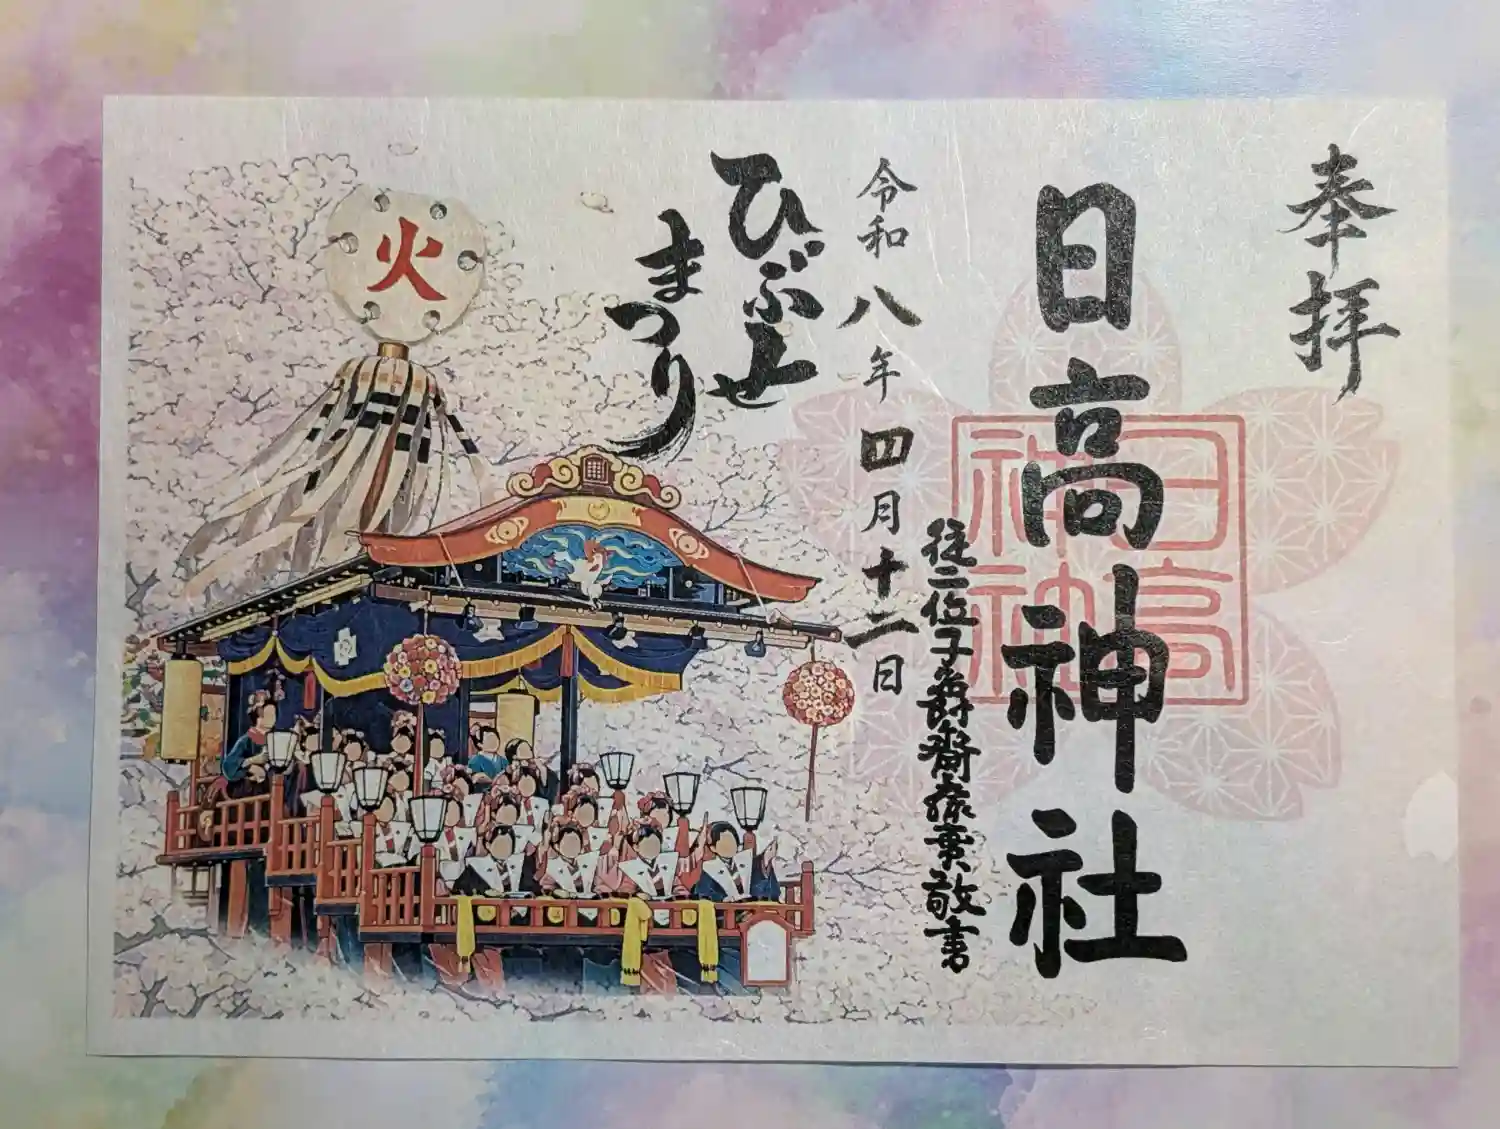 奉拝
日高神社
日高
神社
従二位子爵斎藤實敬書
令和八年四月十二日
ひぶせ
まつり
火